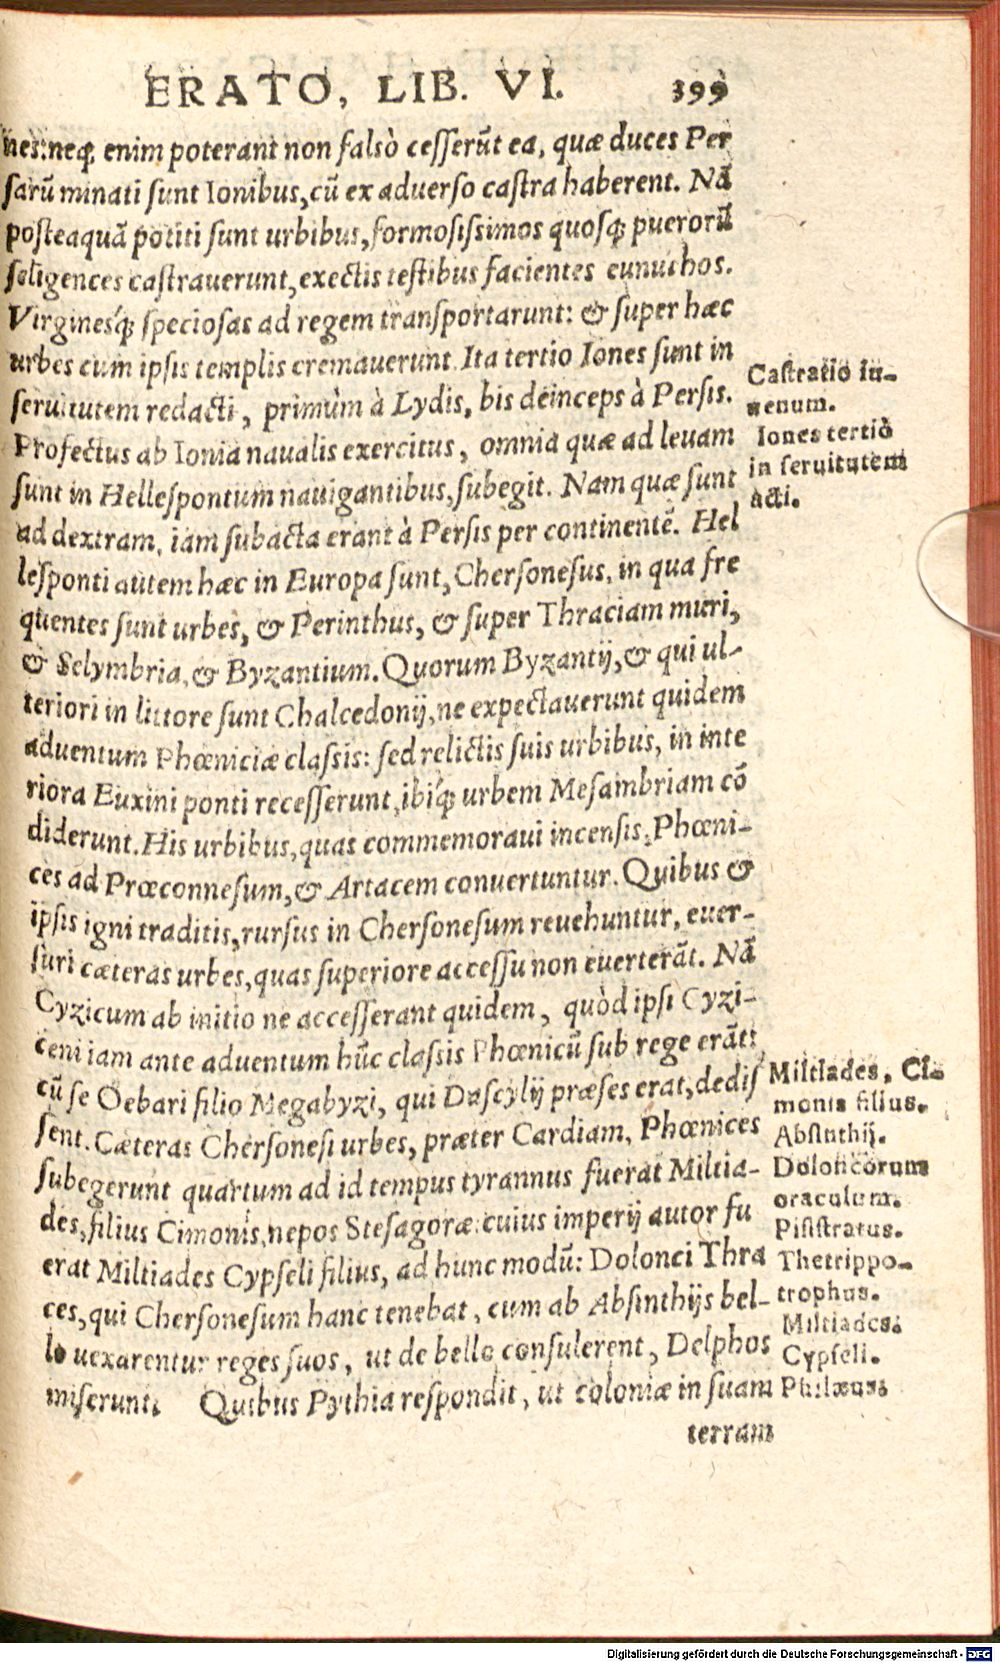 ERATO, LIB. VI. 399
nes: neq; enim poterant non falsò cesserũt ea, quæ duces Per
sarũ minati sunt Ionibus, cũ ex aduerso castra haberent. Nã
posteaquã potiti sunt urbibus, formosissimos quosq; puerorũ
seligences castrauerunt, exectis testibus facientes eunuchos.
Virginesq́; speciosas ad regem transportarunt: & super hæc
urbes cum ipsis templis cremauerunt. Ita tertio Iones sunt in
seruitutem redacti, primùm à Lydis, bis deinceps à Persis.
Profectus ab Ionia naualis exercitus, omnia quæ ad leuam
sunt in Hellespontum nauigantibus, subegit. Nam quæ sunt
ad dextram, iam subacta erant à Persis per continentẽ. Hel
lesponti autem hæc in Europa sunt, Chersonesus, in qua fre
quentes sunt urbes, & Perinthus, & super Thraciam muri,
& Selymbria, & Byzantium. Quorum Byzantij, & qui ul-
teriori in littore sunt Chalcedonij, ne expectauerunt quidem
aduentum Phœniciæ classis: sed relictis suis urbibus, in inte
riora Euxini ponti recesserunt, ibiq́; urbem Mesambriam cõ
diderunt. His urbibus, quas commemoraui incensis, Phœni-
ces ad Prœconnesum, & Artacem conuertuntur. Quibus &
ipsis igni traditis, rursus in Chersonesum reuehuntur, euer-
suri cæteras urbes, quas superiore accessu non euerterãt. Nã
Cyzicum ab initio ne accesserant quidem, quòd ipsi Cyzi-
ceni iam ante aduentum hũc classis Phœnicũ sub rege erãt:
cũ se Oebari filio Megabyzi, qui Dascylij præses erat, dedis
sent. Cæteras Chersonesi urbes, præter Cardiam, Phœnices
subegerunt quartum ad id tempus tyrannus fuerat Miltia-
des, filius Cimonis, nepos Stesagoræ: cuius imperij autor fu
erat Miltiades Cypseli filius, ad hunc modũ: Dolonci Thra
ces, qui Chersonesum hanc tenebat, cum ab Absinthijs bel-
lo uexarentur reges suos, ut de bello consulerent, Delphos
miserunt. Quibus Pythia respondit, ut coloniæ in suam
terram
Castratio iu-
uenum.
Iones tertiò
in seruitutem
acti.
Miltiades, Ci-
monis filius.
Absinthij.
Doloncorum
oraculum.
Pisistratus.
Thetrippo-
trophus.
Miltiades.
Cypseli.
Philæus.
Digitalisierung gefördert durch die Deutsche Forschungsgemeinschaft - DFG